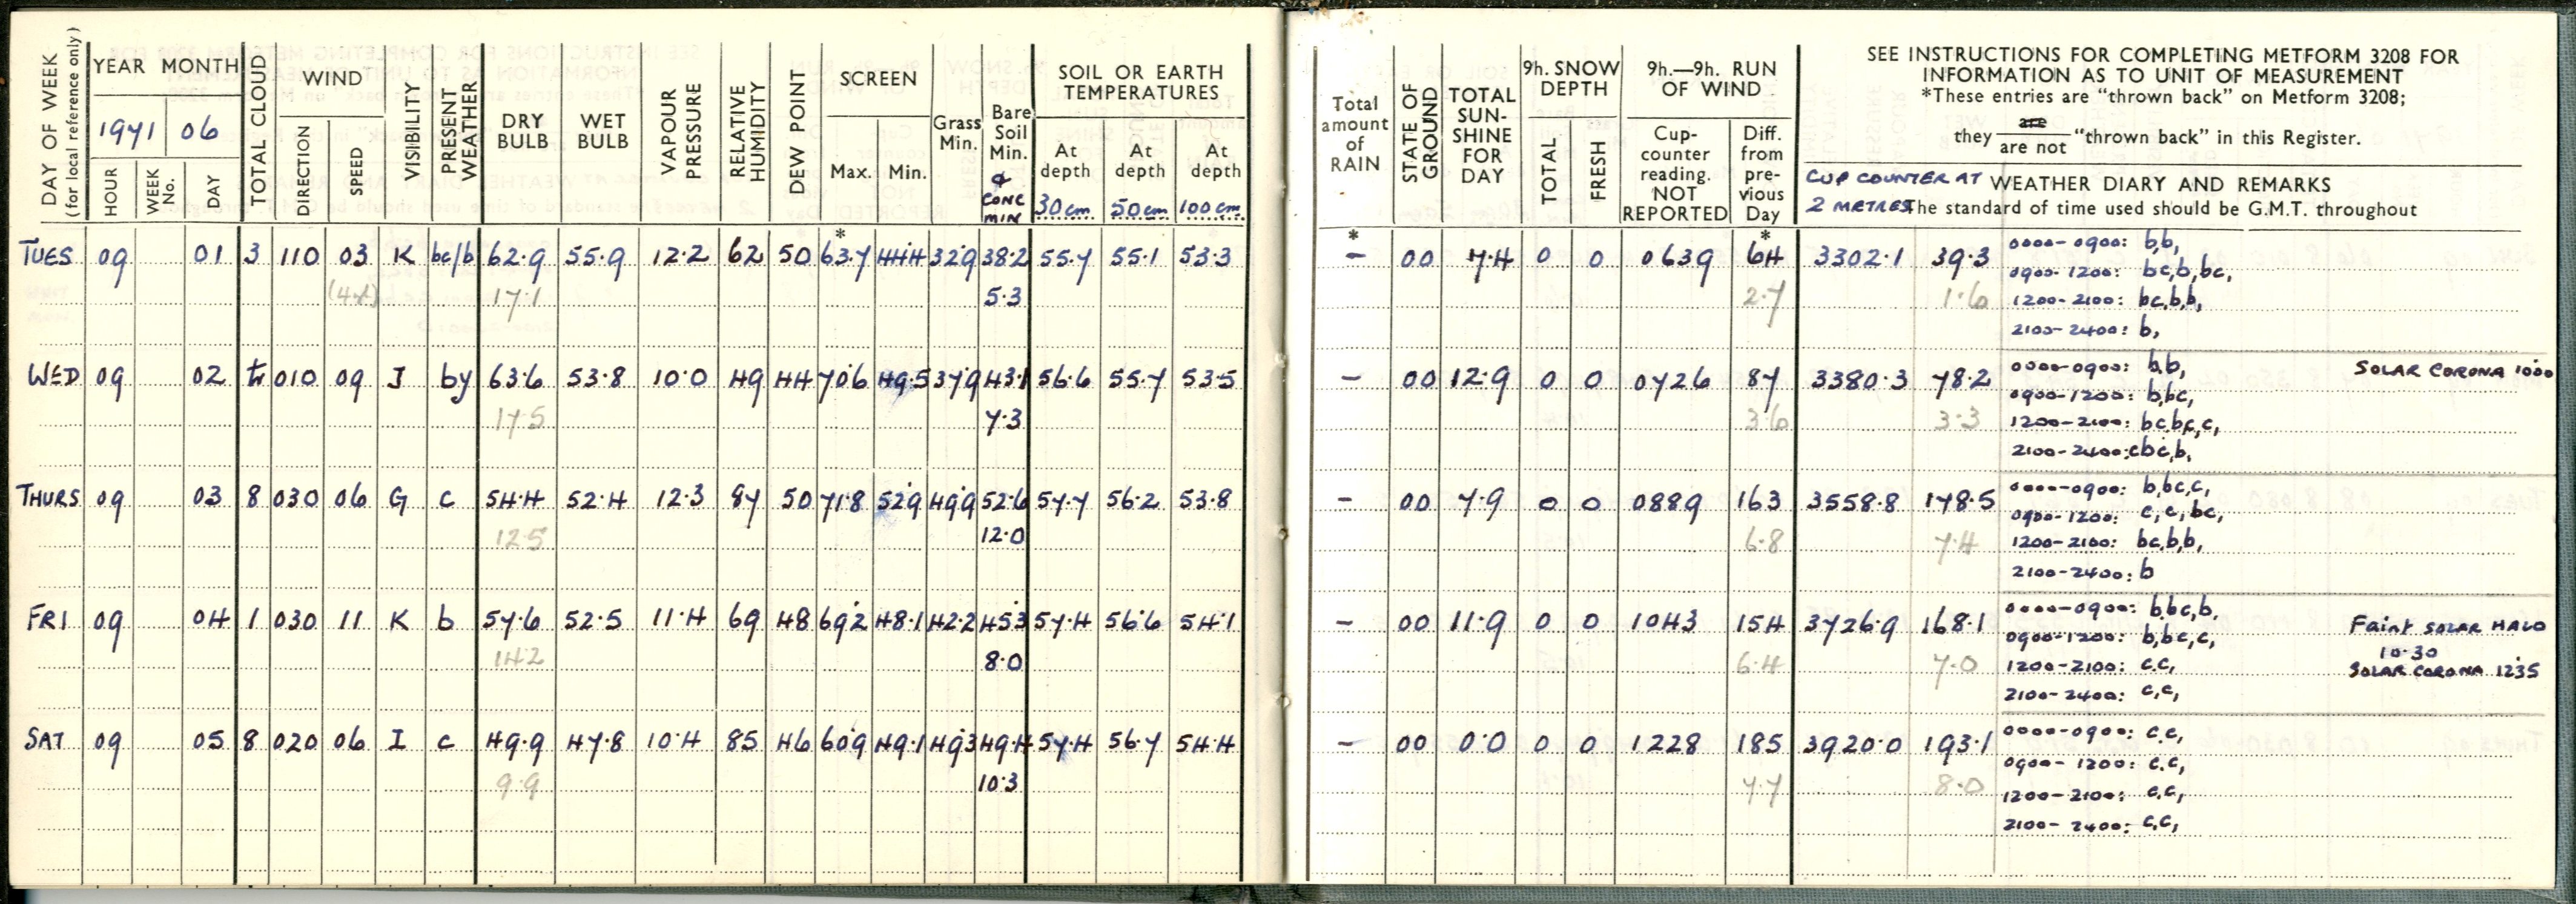 DAY OF WEEK
(for local reference only)
YEAR MONTH
1971 06
HOUR
WEEK No.
DAY
TOTAL CLOUD
WIND
DIRECTION
SPEED
VISIBILITY
PRESENT WEATHER
DRY BULB
WET BULB
VAPOUR PRESSURE
RELATIVE HUMIDITY
DEW POINT
SCREEN
Max. Min.
Grass Min.
Bare Soil Min.
CONC MIN
SOIL OR EARTH TEMPERATURES
At depth 30cm
At depth 50cm
At depth 100cm
Total amount of RAIN
STATE OF GROUND
TOTAL SUN-SHINE FOR DAY
9h. SNOW DEPTH
TOTAL
FRESH
9h.—9h. RUN OF WIND
Cup-counter reading. NOT REPORTED
Diff. from pre-vious Day
SEE INSTRUCTIONS FOR COMPLETING METFORM 3208 FOR
INFORMATION AS TO UNIT OF MEASUREMENT
*These entries are "thrown back" on Metform 3208;
they are / are not "thrown back" in this Register.
CUP COUNTER AT 2 METRES
WEATHER DIARY AND REMARKS
The standard of time used should be G.M.T. throughout
* * *
TUES 09 01 3 110 03 K bc/b 62.9 55.9 12.2 62 50 63.7 44.4 32.9 38.2 55.7 55.1 53.3 - 00 7.4 0 0 0639 64 3302.1 39.3 0000-0900: b,b,
0900-1200: bc,b,bc,
17.1 5.3 2.7 1.6 1200-2100: bc,b,b,
2100-2400: b,
WED 09 02 tr 010 09 J by 63.6 53.8 10.0 49 44 70.6 49.5 37.9 43.1 56.6 55.7 53.5 - 00 12.9 0 0 0726 87 3380.3 78.2 0000-0900: b,b, SOLAR CORONA 1000
0900-1200: b,bc,
17.5 7.3 3.6 3.3 1200-2100: bc,bc,c,
2100-2400: c,bc,b,
THURS 09 03 8 030 06 G c 54.4 52.4 12.3 87 50 71.8 52.9 49.9 52.6 57.7 56.2 53.8 - 00 7.9 0 0 0889 163 3558.8 178.5 0000-0900: b,bc,c,
0900-1200: c,c,bc,
12.5 12.0 6.8 7.4 1200-2100: bc,b,b,
2100-2400: b
FRI 09 04 1 030 11 K b 57.6 52.5 11.4 69 48 69.2 48.1 42.2 45.3 57.4 56.6 54.1 - 00 11.9 0 0 1043 154 3726.9 168.1 0000-0900: b,bc,b, Faint SOLAR HALO
0900-1200: b,bc,c, 10.30
14.2 8.0 6.4 7.0 1200-2100: c,c, SOLAR CORONA 1235
2100-2400: c,c,
SAT 09 05 8 020 06 I c 49.9 47.8 10.4 85 46 60.9 49.1 49.3 49.4 57.4 56.7 54.4 - 00 0.0 0 0 1228 185 3920.0 193.1 0000-0900: c,c,
0900-1200: c,c,
9.9 10.3 7.7 8.0 1200-2100: c,c,
2100-2400: c,c,